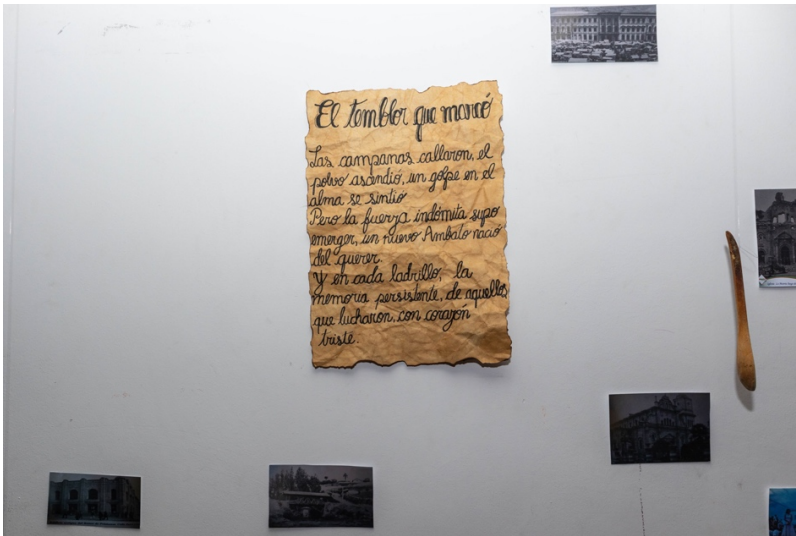 El temblor que marcó
Las campanas callaron, el
polvo ascendió, un golpe en el
alma se sintió
Pero la fuerza indómita supo
emerger, un nuevo Ambato nació
del querer.
Y en cada ladrillo, la
memoria persistente, de aquellos
que lucharon, con corazón
triste.